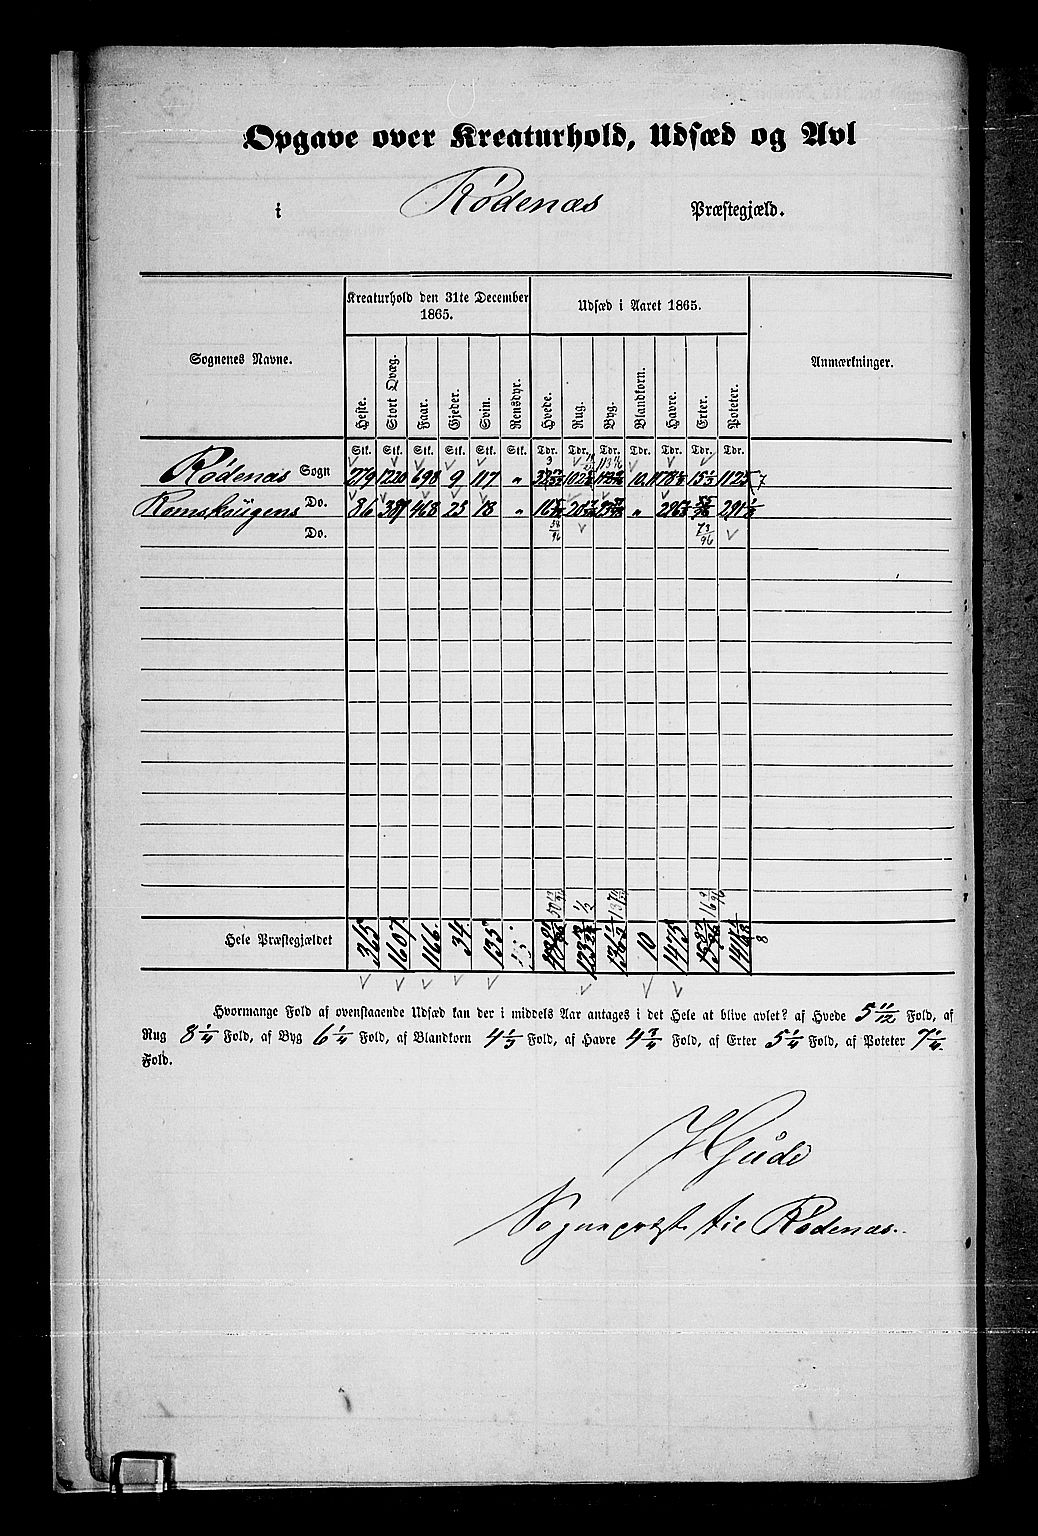 Opgave over Kreaturhold, Udsæd og Avl
i Rødenæs Præstegjæld.
Sognenes Navne.
Kreaturhold den 31te December 1865.
Udsæd i Aaret 1865.
Anmærkninger.
Heste. Stort Qvæg. Faar. Gjeder. Svin. Rensdyr. Hvede. Rug. Byg. Blandkorn. Havre. Erter. Poteter.
Stk. Stk. Stk. Stk. Stk. Stk. Tdr. Tdr. Tdr. Tdr. Tdr. Tdr. Tdr.
Rødenæs Sogn 279 1220 698 9 117 "
Do. 86 387 468 25 18 " "
Do.
Hele Præstegjældet 365 1607 1166 34 135 10 1475
Hvormange Fold af ovenstaaende Udsæd kan der i middels Aar antages i det Hele at blive avlet? af Hvede 5 11/12 Fold, af
Rug 8 1/4 Fold, af Byg 6 1/4 Fold, af Blandkorn 4 1/3 Fold, af Havre 4 3/4 Fold, af Erter 5 1/4 Fold, af Poteter 7 1/4
Fold.
H Gude
Sognepræst til Rødenæs.